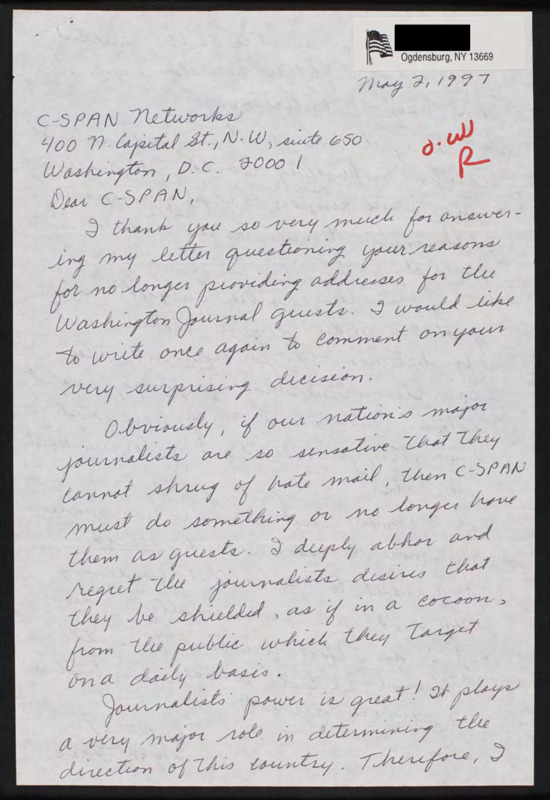 Ogdensburg, NY 13669
May 2, 1997
C-SPAN Networks
400 N. Capital St., N.W, suite 650
Washington, D.C. 20001
Dear C-SPAN,
I thank you so very much for answer-
ing my letter questioning your reasons
for no longer providing addresses for the
Washington Journal guests. I would like
to write once again to comment on your
very surprising decision.
Obviously, if our nation's major
journalists are so sensative that they
cannot shrug of hate mail, then C-SPAN
must do something or no longer have
them as guests. I deeply abhor and
regret the journalists desires that
they be shielded, as if in a cocoon,
from the public which they target
on a daily basis.
Journalists' power is great! It plays
a very major role in determining the
direction of this country. Therefore, I